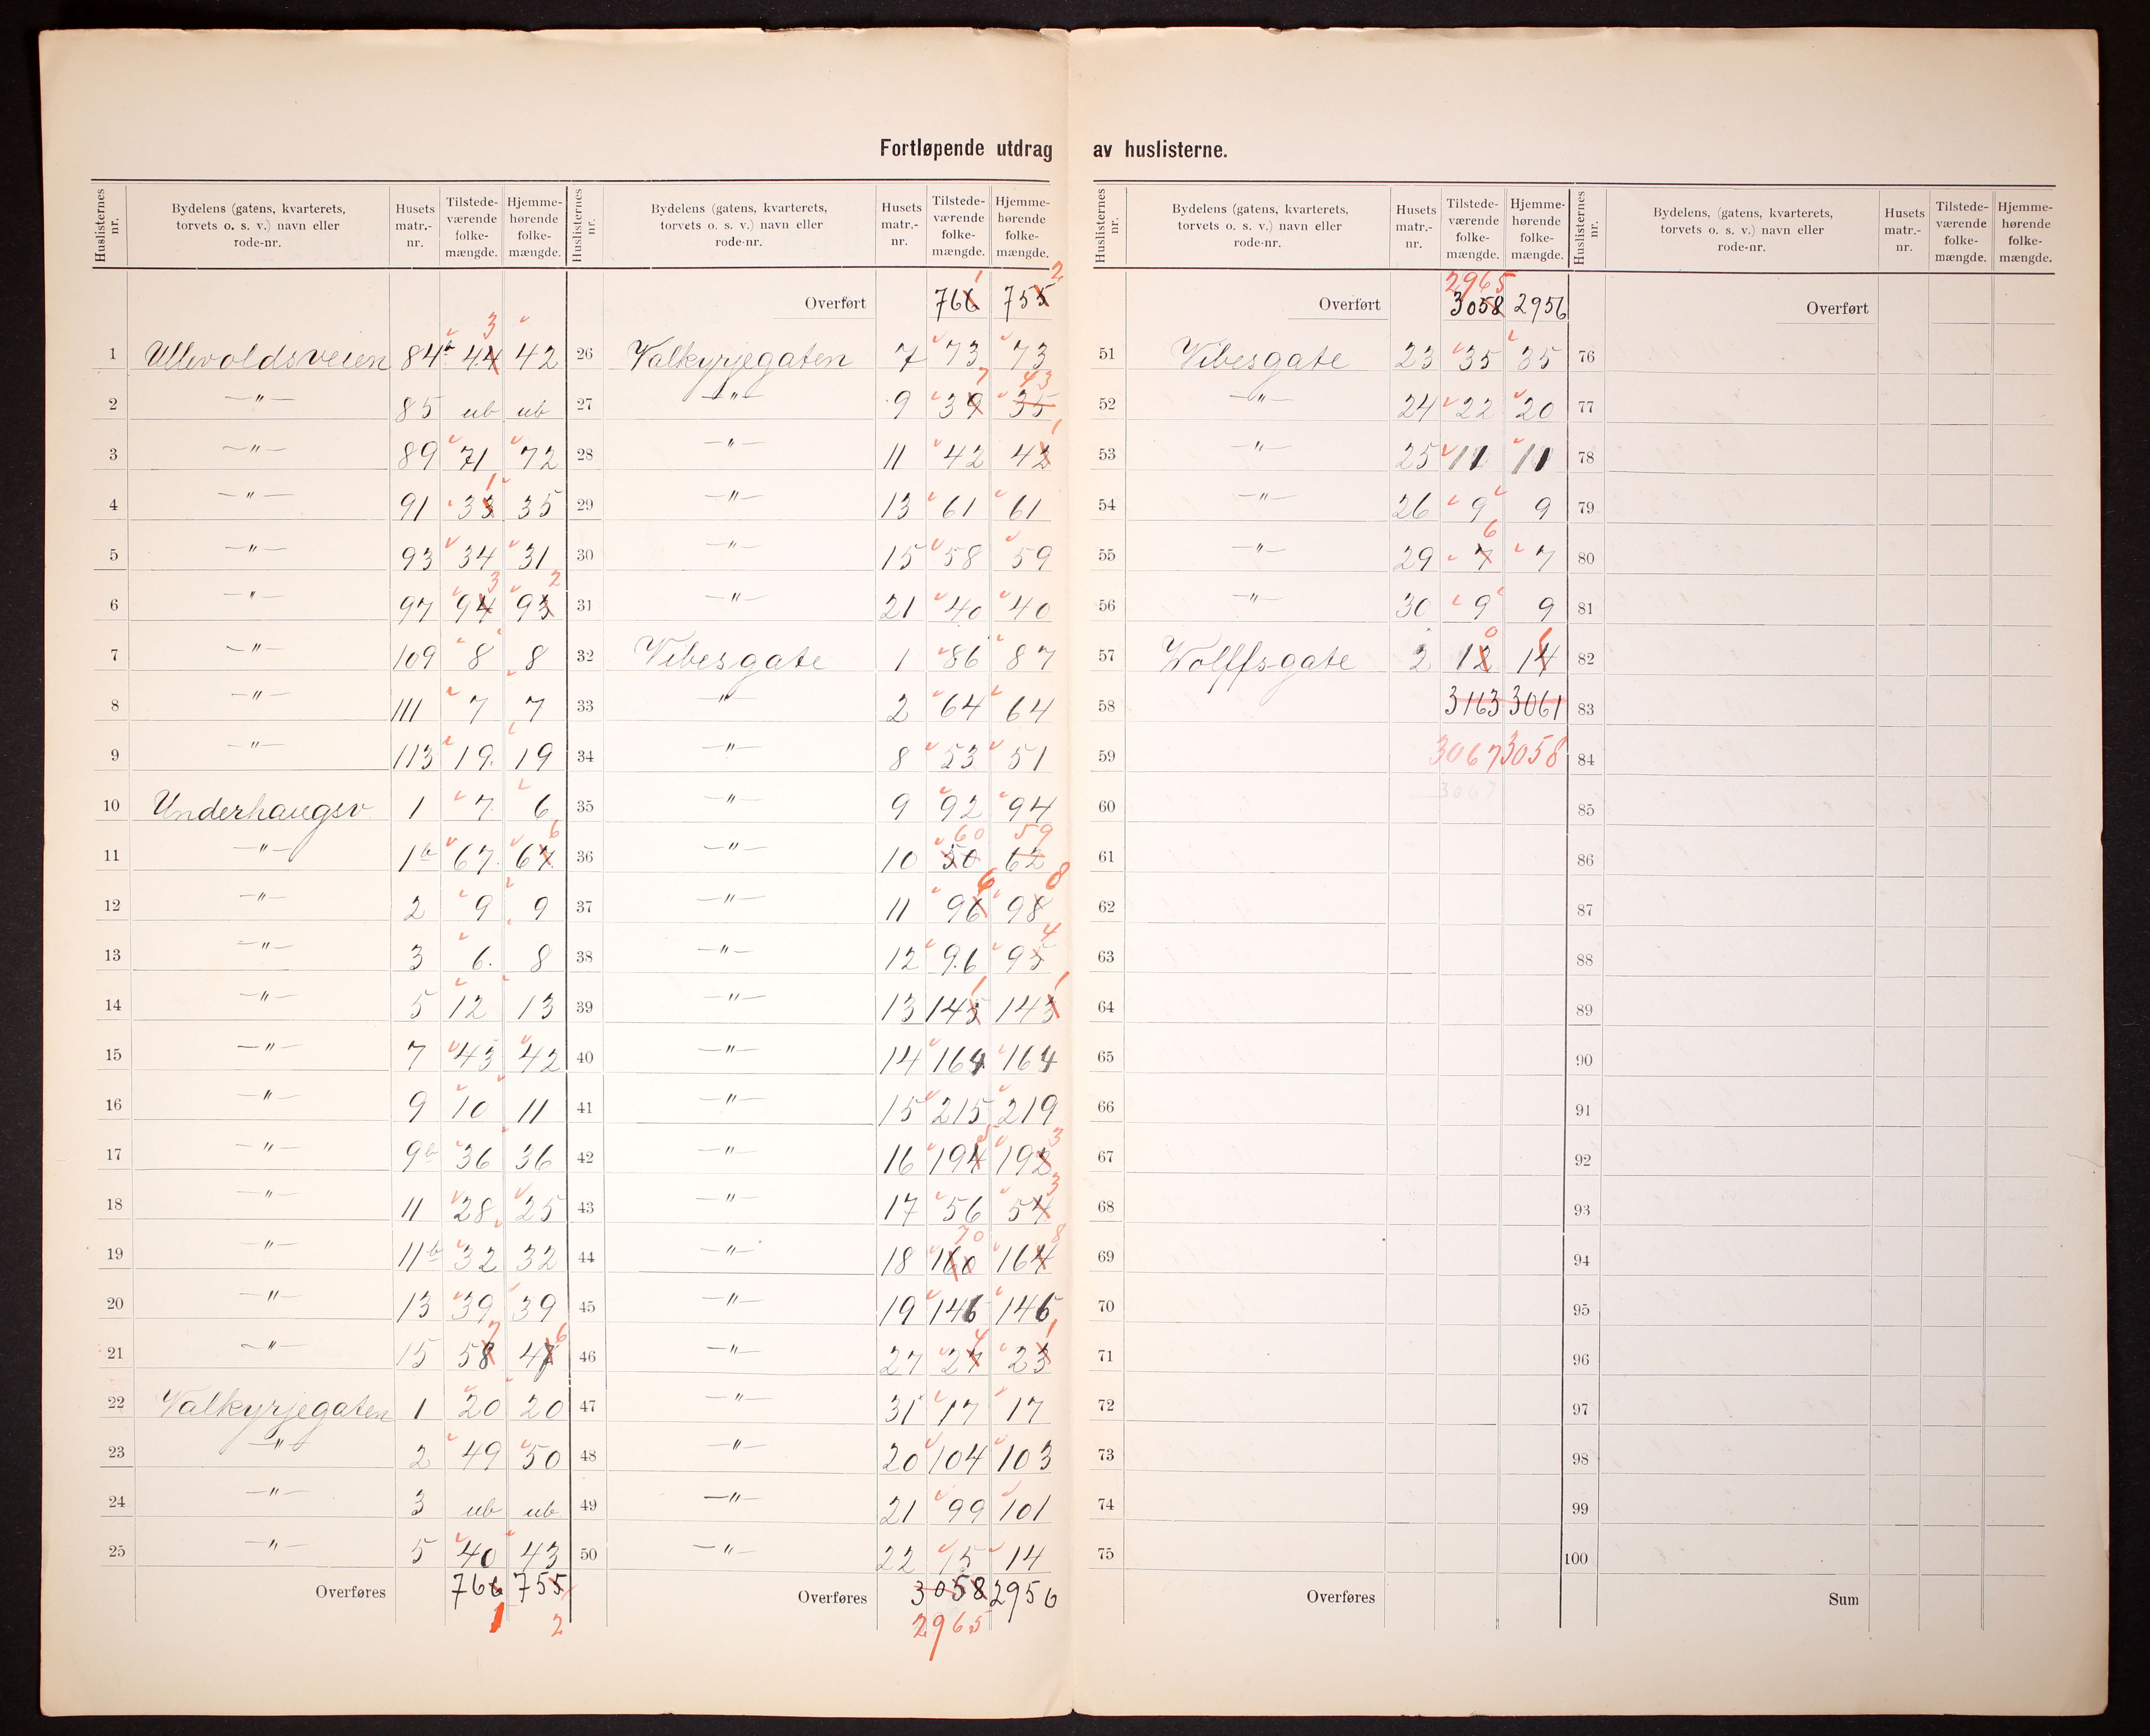 Fortløpende utdrag av huslisterne.
Huslisternes nr. | Bydelens (gatens, kvarterets, torvets o. s. v.) navn eller rode-nr. | Husets matr.-nr. | Tilstede-værende folke-mængde. | Hjemme-hørende folke-mængde.
1 Ullevoldsveien 84b 44 3 42
2 —"— 85 ub ub
3 —"— 89 71 72
4 —"— 91 33 1 35
5 —"— 93 34 31
6 —"— 97 94 3 93 2
7 —"— 109 8 8
8 —"— 111 7 7
9 —"— 113 19. 19
10 Underhaugsv. 1 7. 6
11 —"— 1b 67. 67. 6
12 —"— 2 9 9
13 —"— 3 6. 8
14 —"— 5 12 13
15 —"— 7 43 42
16 —"— 9 10 11
17 —"— 9b 36 36
18 —"— 11 28 25
19 —"— 11b 32 32
20 —"— 13 39 39
21 —"— 15 58 7 47 6
22 Valkyrjegaten 1 20 20
23 —"— 2 49 50
24 —"— 3 ub ub
25 —"— 5 40 43
Overføres 766 755
1 2
Huslisternes nr. | Bydelens (gatens, kvarterets, torvets o. s. v.) navn eller rode-nr. | Husets matr.-nr. | Tilstede-værende folke-mængde. | Hjemme-hørende folke-mængde.
Overført 766 1 755 2
26 Valkyrjegaten 7 73 73
27 —"— 9 39 7 35 43
28 —"— 11 42 42 1
29 —"— 13 61 61
30 —"— 15 58 59
31 —"— 21 40 40
32 Vibesgate 1 86 87
33 " 2 64 64
34 —"— 8 53 51
35 —"— 9 92 94
36 —"— 10 50 60 62 59
37 —"— 11 96 6 98 8
38 —"— 12 96 95 4
39 —"— 13 145 1 143 1
40 —"— 14 164 164
41 —"— 15 215 219
42 —"— 16 194 5 192 3
43 —"— 17 56 54 3
44 —"— 18 160 70 164 8
45 —"— 19 146 146
46 —"— 27 27 4 23 1
47 —"— 31 17 17
48 —"— 20 104 103
49 —"— 21 99 101
50 —"— 22 15 14
Overføres 3058 2956
2965
Huslisternes nr. | Bydelens (gatens, kvarterets, torvets o. s. v.) navn eller rode-nr. | Husets matr.-nr. | Tilstede-værende folke-mængde. | Hjemme-hørende folke-mængde.
2965
Overført 3058 2956
51 Vibesgate 23 35 35
52 —"— 24 22 20
53 —"— 25 11 11
54 —"— 26 9 9
55 —"— 29 7 6 7
56 —"— 30 9 9
57 Wolffsgate 2 12 0 14
58 3163 3061
59 3067 3058
60 3067
61
62
63
64
65
66
67
68
69
70
71
72
73
74
75
Overføres
Huslisternes nr. | Bydelens, (gatens, kvarterets, torvets o. s. v.) navn eller rode-nr. | Husets matr.-nr. | Tilstede-værende folke-mængde. | Hjemme-hørende folke-mængde.
Overført
76
77
78
79
80
81
82
83
84
85
86
87
88
89
90
91
92
93
94
95
96
97
98
99
100
Sum